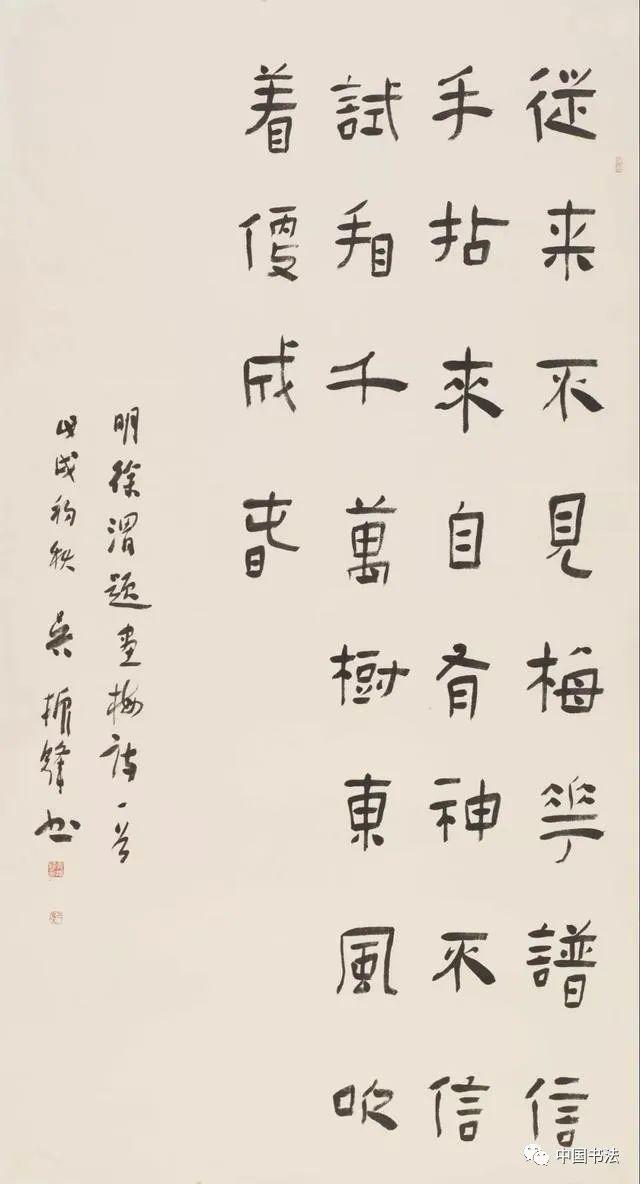 從来不見梅華譜信
手拈來自有神不信
試看千萬樹東風吹
着便成春
明徐渭题畫梅诗一首
戊戌初秋 吴振鋒书
中国书法